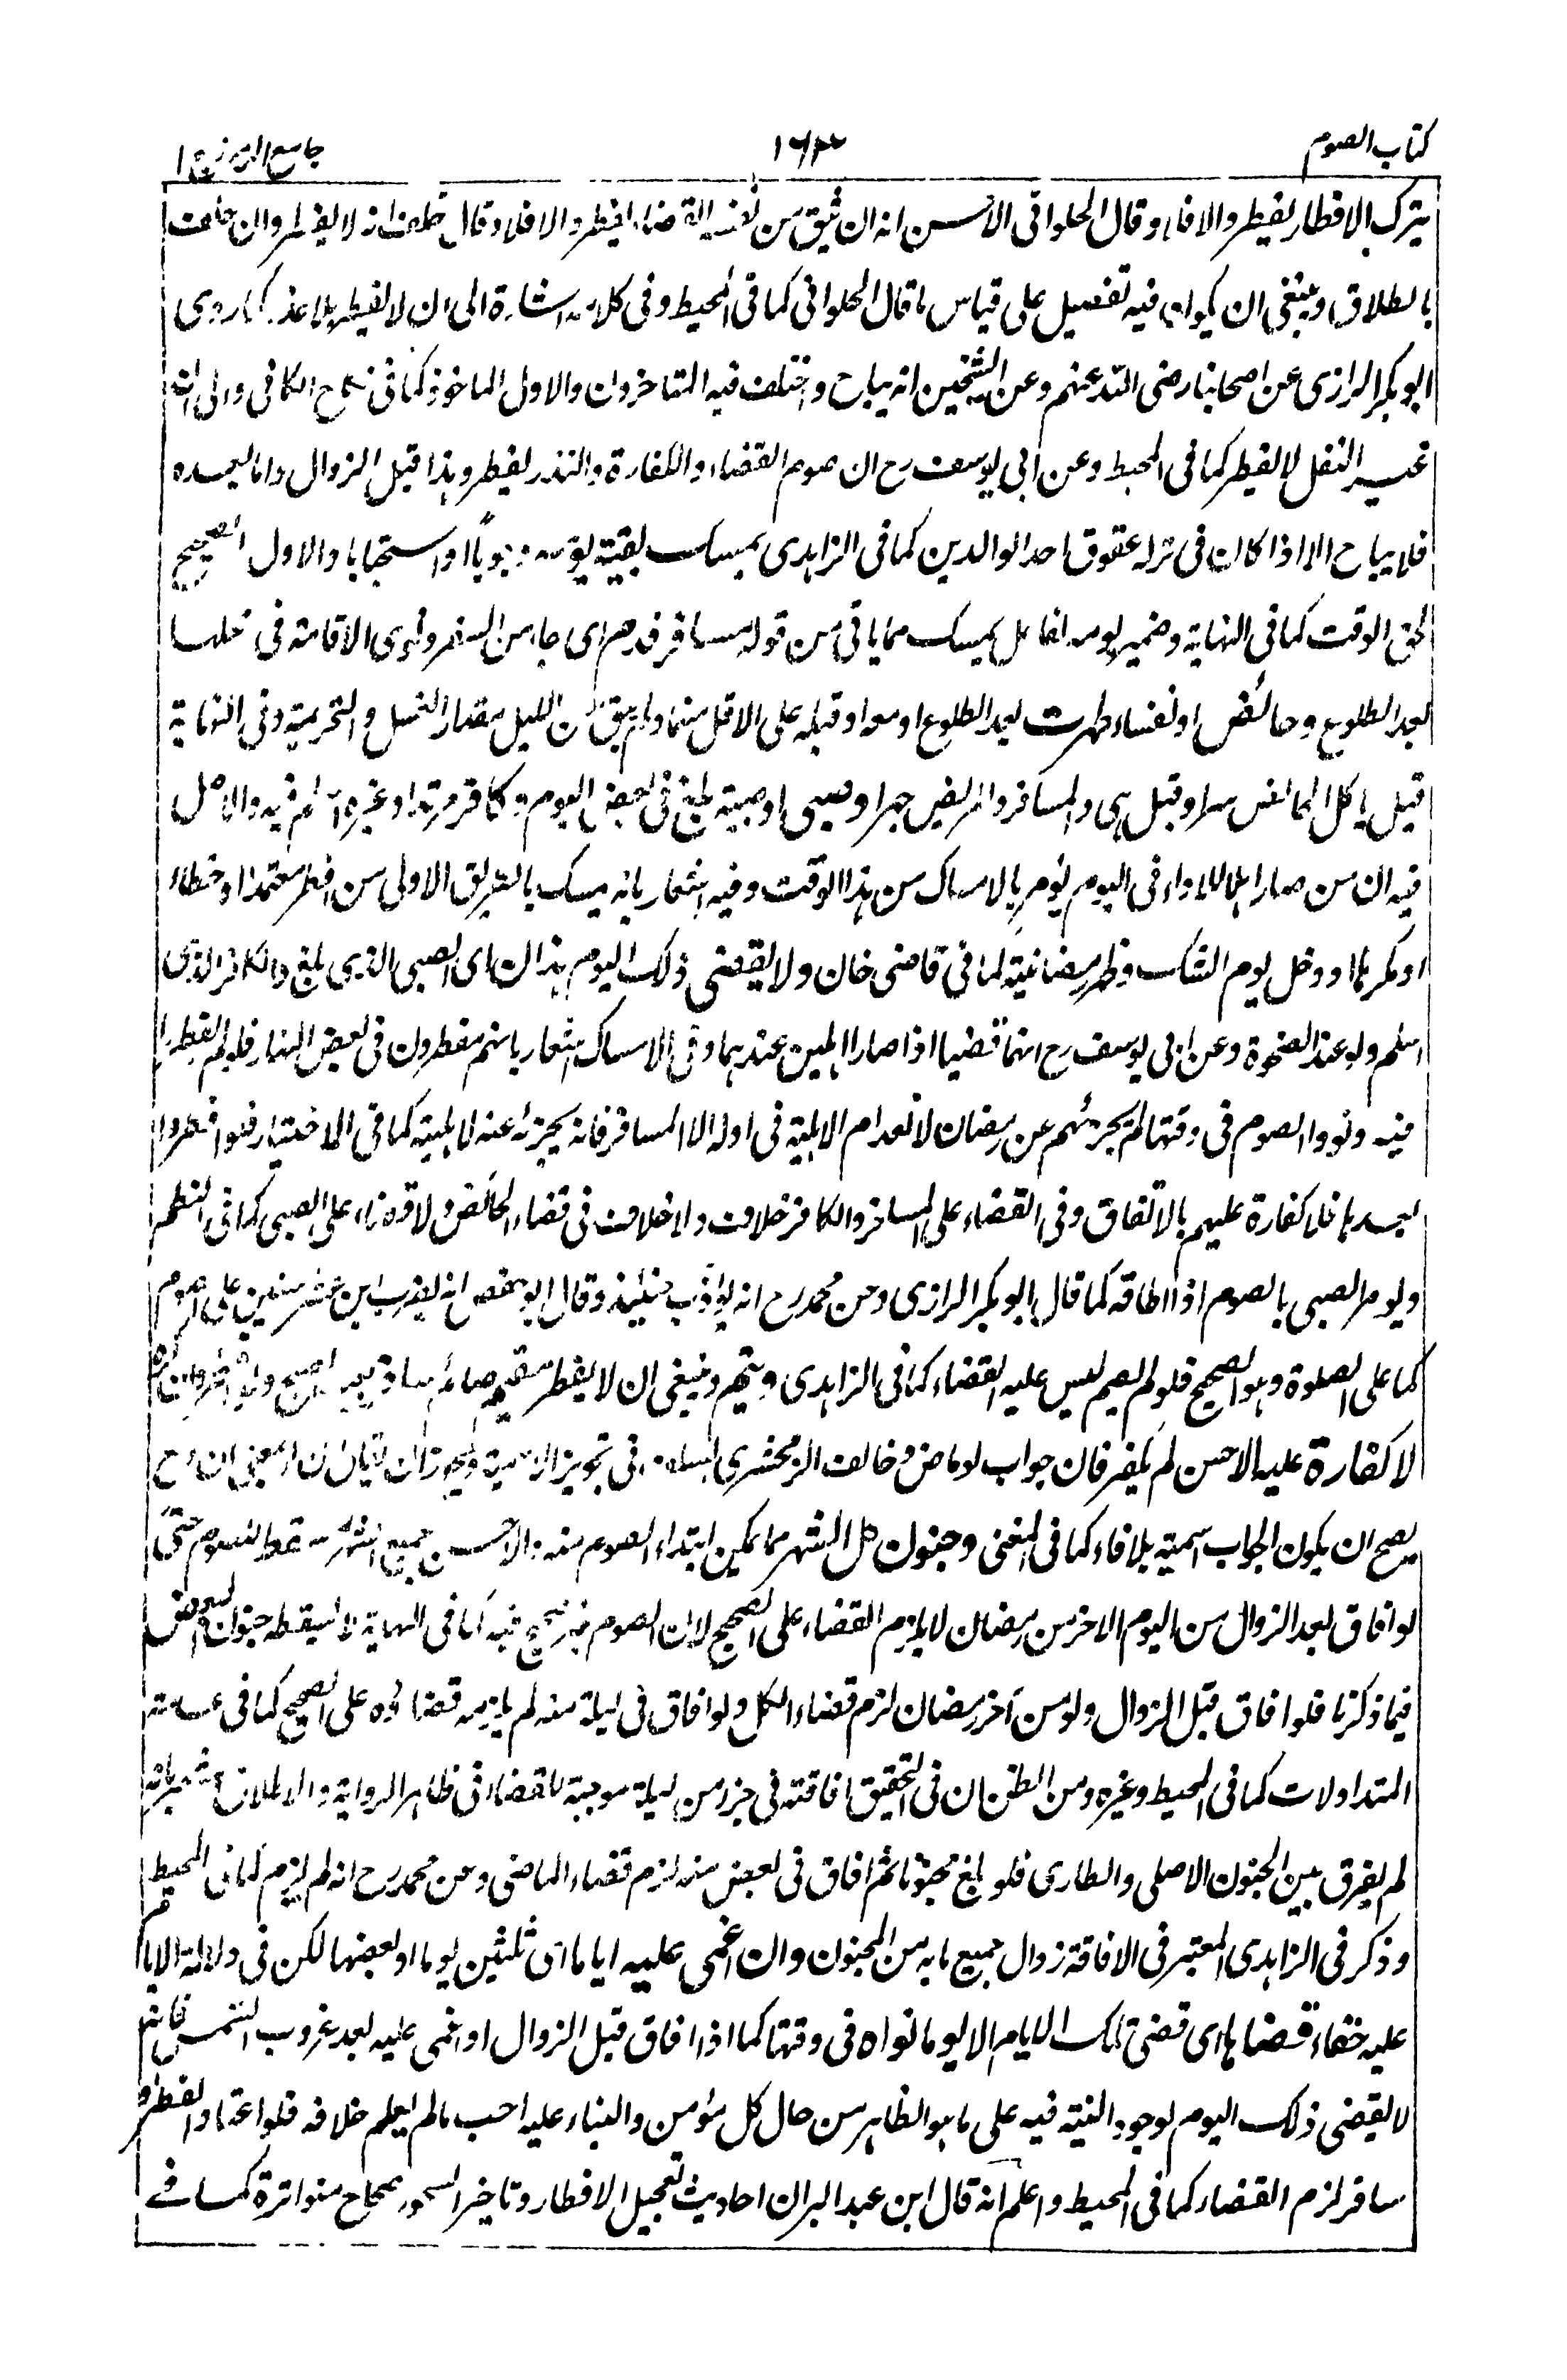 كتاب الصوم
جامع الرموز ج ١
يترك الافطار يفطر والا فلا وقال الحلوانى الاحسن انه ان يثق من نفسه القضاء يفطر والا فلا وقال خلف انه لا يفطر وان حلف
بالطلاق وينبغى ان يكون فيه تفصيل على قياس ما قال الحلوانى كما فى المحيط وفى كلامه اشارة الى ان لا يفطر بلا عذر كما روى
ابو بكر الرازى عن اصحابنا رضى الله عنهم وعن الشيخين انه يباح واختلف فيه المتاخرون والاول الماخوذ كما فى نكاح الكافى والى ان
غير النفل لا يفطر كما فى المحيط وعن ابى يوسف رح ان صوم القضاء والكفارة والنذر يفطر وهذا قبل الزوال واما بعده
فلا يباح الا اذا كان فى تركه عقوق احد الوالدين كما فى الزاهدى يمسك بقية يومه وجوبا او استحبابا والاول الصحيح
لحق الوقت كما فى النهاية وضمير يومه لفاعل يمسك مما ياتى من قوله مسافر قدم اى جاء من السفر ونوى الاقامة فى محلها
بعد الطلوع وحائض او نفساء طهرت بعد الطلوع او معه او قبله على الاقل منهما ولم يبق من الليل مقدار الغسل والتحريمة وفى النهاية
قيل ياكل الحائض سرا وقيل هى والمسافر والمريض جهرا وصبى او صبية بلغ فى بعض اليوم وكافر مرتد او غيره اسلم فيه والاصل
فيه ان من صار اهلا للاداء فى اليوم يؤمر بالامساك من هذا الوقت وفيه اشعار بانه يمسك بالطريق الاولى من افطر متعمدا او خطاء
او مكرها او دخل يوم الشك وظهر رمضانيته كما فى قاضى خان ولا يقضى ذلك اليوم هذان اى الصبى الذى بلغ والكافر الذى
اسلم ولو عند الضحوة وعن ابى يوسف رح انهما قضيا اذا صارا اهلين عندهما وفى الامساك اشعار بانهم مفطرون فى بعض النهار فلو لم يفطروا
فيه ونووا الصوم فى وقتها لم يجزئهم عن رمضان لانعدام الاهلية فى اوله الا المسافر فانه يجزئه عنه لاهليته كما فى الاختيار فلو افطروا
بعدها فلا كفارة عليهم بالاتفاق وفى القضاء على المسافر والكافر خلاف ولا خلاف فى قضاء الحائض ولا قضاء على الصبى كما فى النظم
ويومر الصبى بالصوم اذا اطاقه كما قال ابو بكر الرازى وعن محمد رح انه يؤدب حينئذ وقال ابو حفص انه يضرب ابن عشر سنين على الصوم
كما على الصلوة وهو الصحيح فلو لم يصم ليس عليه القضاء كما فى الزاهدى ويتم وينبغى ان لا يفطر مقيم صائم سافر بعد الصبح ولو افطر
لا كفارة عليه الاحسن لم يكفر فان جواب لو ماض وخالف الزمخشرى فى تجويز الاسمية
يصح ان يكون الجواب اسمية بلا فاء كما فى المغنى وجنون كل الشهر مما يمكن ابتداء الصوم منه والاحسن جميع الشهر مسقط للصوم حتى
لو افاق بعد الزوال من اليوم الاخر من رمضان لا يلزم القضاء على الصحيح لان الصوم غير صحيح فيه كما فى النهاية لا يسقطه جنون البعض
فيما ذكرنا فلو افاق قبل الزوال ولو من آخر رمضان لزم قضاء الكل ولو افاق فى ليلة منه لم يلزمه قضاؤه على الصحيح كما فى عامة
المتداولات كما فى المحيط وغيره ومن الظن ان فى التحقيق افاقته فى جزء من ليلة موجبة للقضاء فى ظاهر الرواية والاطلاق مشير بانه
لم يفرق بين الجنون الاصلى والطارى فلو بلغ مجنونا ثم افاق فى بعض منه لزم قضاء الماضى وعن محمد رح انه لم يلزم كما فى المحيط
وذكر فى الزاهدى المعتبر فى الافاقة زوال جميع ما به من الجنون وان اغمى عليه اياما اى ثلثين يوما او بعضها لكن فى دلالة الايام
عليه خفاء قضاها اى قضى تلك الايام الا يوما نواه فى وقتها كما اذا افاق قبل الزوال او اغمى عليه بعد غروب الشمس فانه
لا يقضى ذلك اليوم لوجود النية فيه على ما هو الظاهر من حال كل مؤمن والبناء عليه احب ما لم يعلم خلافه فلو اعتاد الفطر او
سافر لزم القضاء كما فى المحيط واعلم انه قال ابن عبد البر ان احاديث تعجيل الافطار وتاخير السحور صحاح متواترة كما فى